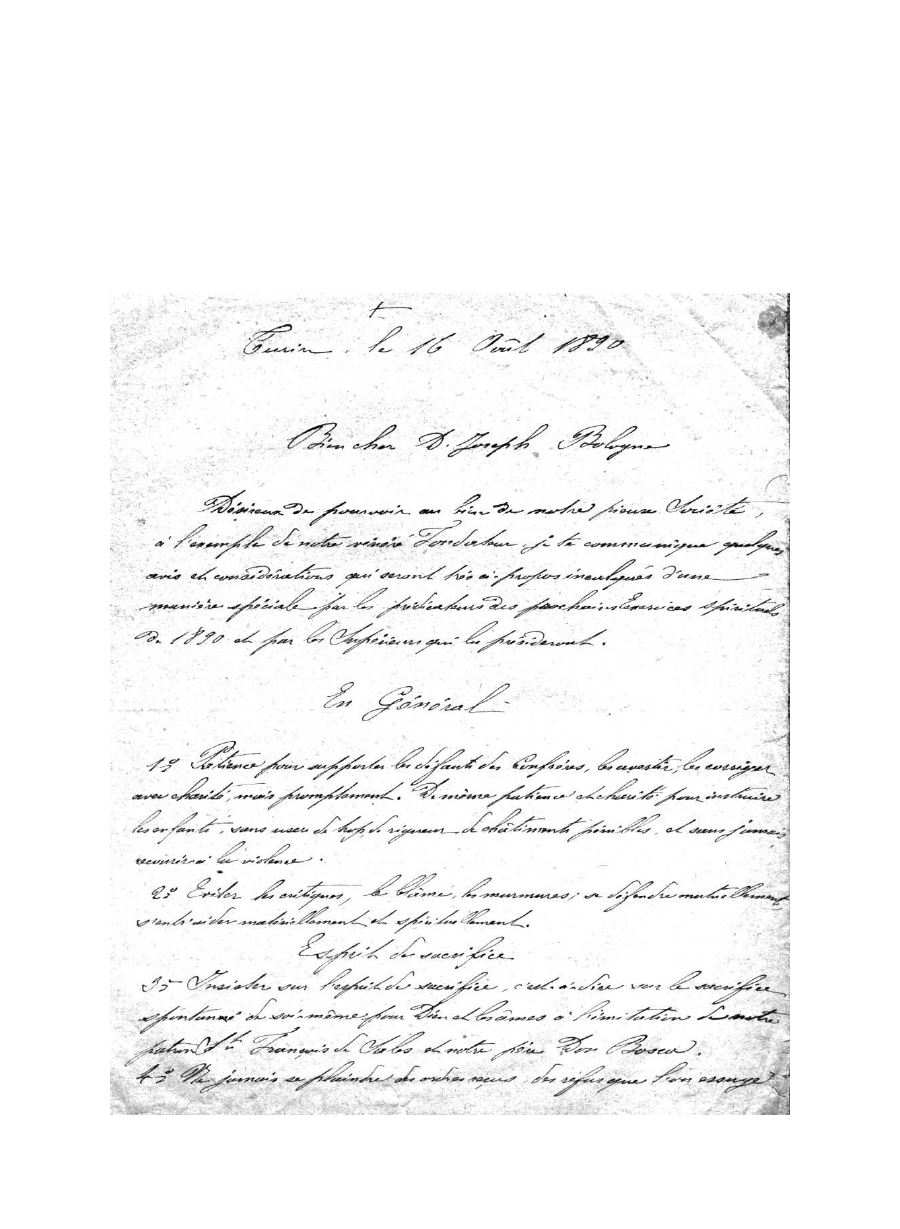 +
Turin, le 16 Août 1890
Bien cher D. Joseph Bologne
Désireux de pourvoir au bien de notre pieuse Société,
à l'exemple de notre vénéré Fondateur, je te communique quelques
avis et considérations qui seront très à-propos inculqués d'une
manière spéciale par les prédicateurs des prochains Exercices spirituels
de 1890 et par les Supérieurs qui les présideront.
En Général
1º Patience pour supporter les défauts des Confrères, les avertir, les corriger
avec charité, mais promptement. De même patience et charité pour instruire
les enfants, sans user de trop de rigueur de châtiments pénibles, et sans jamais
recourir à la violence.
2º Eviter les critiques, le blâme, les murmures; se défendre mutuellement
s'entr'aider matériellement et spirituellement.
Esprit de sacrifice
3º Insister sur l'esprit de sacrifice, c'est-à-dire sur le sacrifice
spontané de soi-même pour Dieu et les âmes à l'imitation de notre
patron St François de Sales et notre père Don Bosco.
4º Ne jamais se plaindre des ordres reçus, des refus que l'on essuye